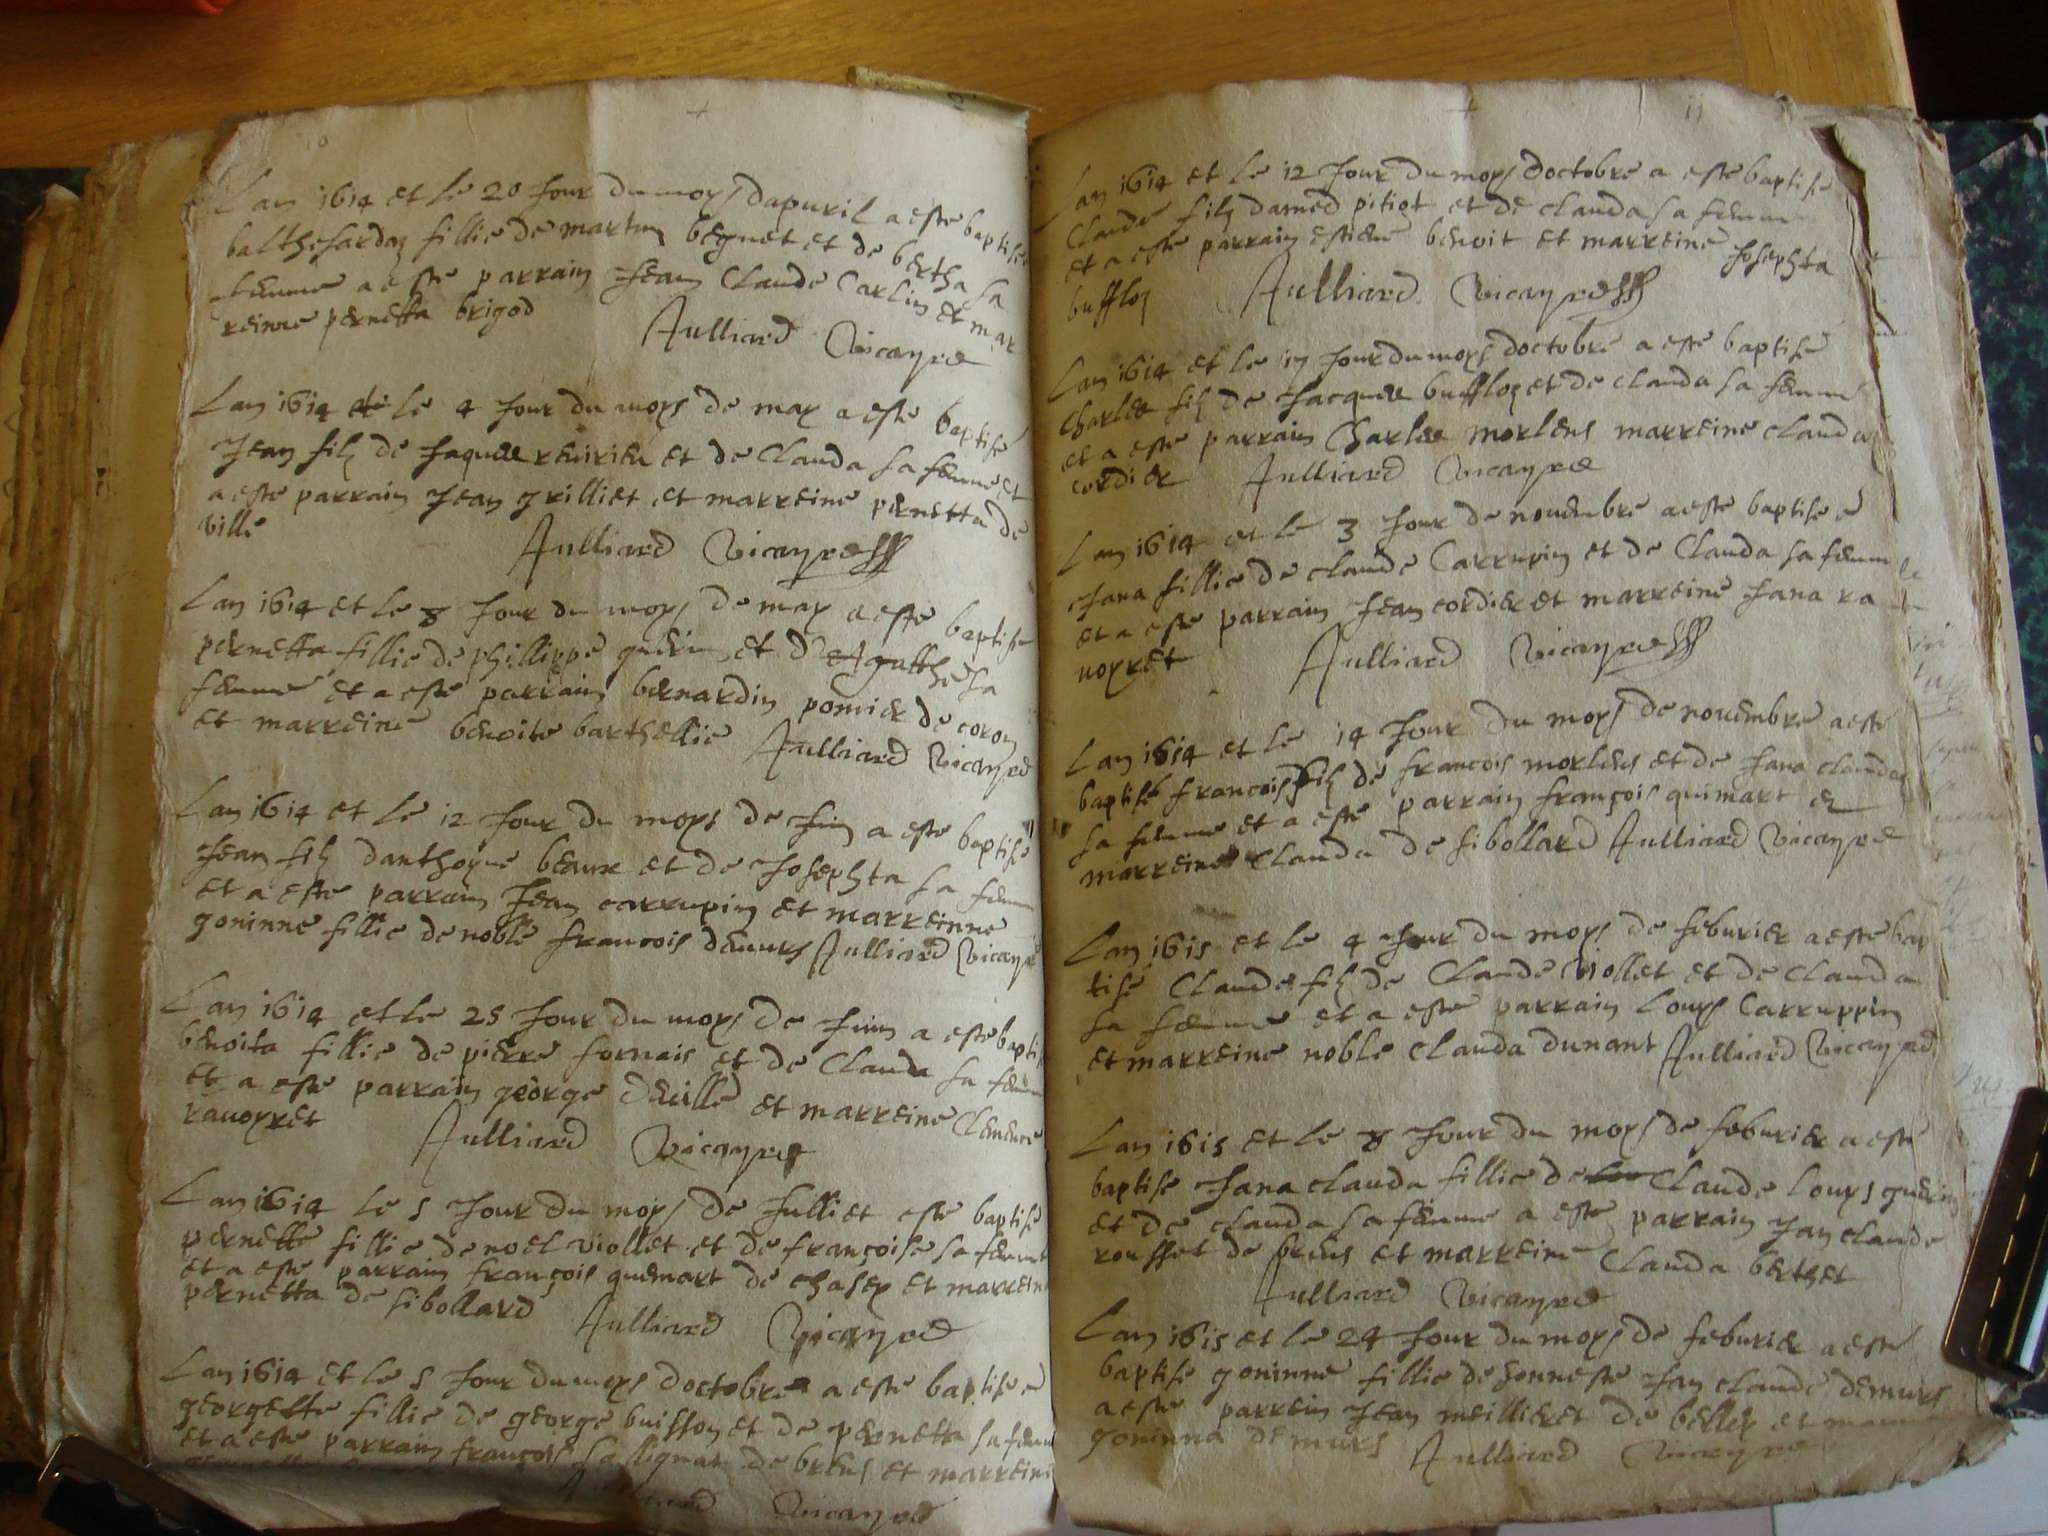 10
Lan 1614 et le 20 Jour du moys dapuril a este baptisee
balthesarda fillie de martin beguet et de bertha sa
femme a este parrain Jean Claude Carlin et mar
reinne pernetta brigod
Julliard Vicayre
Lan 1614 et le 4 Jour du moys de may a este baptise
Jean filz de Jaques et de Clauda sa femme et
a este parrain Jean grilliet et marreine pernetta de
ville
Julliard Vicayre
Lan 1614 et le 8 Jour du moys de may a este baptise
pernetta fillie de phillippe guerin et d Agatthe sa
femme et a este parrain bernardin pomier de coron
et marreine benoite barthellie Julliard Vicayre
Lan 1614 et le 12 Jour du moys de Juin a este baptise
Jean filz danthoyne beaux et de Josephta sa femme
et a este parrain Jean carrupin et marreinne
goninne fillie de noble francois demurs Julliard Vicayre
Lan 1614 et le 25 Jour du moys de Juin a este baptise
benoita fillie de pierre fornais et de Clauda sa femme
et a este parrain george deville et marreine Clemence
rauoyret Julliard Vicayre
Lan 1614 le 5 Jour du moys de Julliet este baptise
pernette fillie de noel viollet et de françoise sa femme
et a este parrain françois quemart de chasey et marreine
pernetta de sibollard Julliard Vicayre
Lan 1614 et le 5 Jour du moys doctobre a este baptisee
georgette fillie de george buisson et de pernetta sa femme
et a este parrain françois sallignat de brens et marreine
Julliard Vicayre
11
Lan 1614 et le 12 Jour du moys doctobre a este baptise
Claude filz damed pitiot et de clauda sa femme
et a este parrain estiene benoit et marreine Josephta
buffloz Julliard Vicayre
Lan 1614 et le 17 Jour du moys doctobre a este baptise
Charles filz de Jacques buffloz et de clauda sa femme
et a este parrain Charles morlens marreine clauda
cordier Julliard Vicayre
Lan 1614 et le 3 Jour de nouembre a este baptisee
Jana fillie de claude Carrupin et de Clauda sa femme
et a este parrain Jean cordier et marreine Jana ra
uoyret Julliard Vicayre
Lan 1614 et le 14 Jour du moys de nouembre a este
baptise francois filz de francois morlens et de Jana clauda
sa femme et a este parrain françois quimart et
marreine Clauda de sibollard Julliard Vicayre
Lan 1615 et le 4 Jour du moys de feburier a este bap
tise Claude filz de Claude Viollet et de Clauda
sa femme et a este parrain Louys Carruppin
et marreine noble clauda dunant Julliard Vicayre
Lan 1615 et le 8 Jour du moys de feburier a este
baptise Jana clauda fillie de Claude louys guerin
et de clauda sa femme a este parrain Jan claude
rousset de brens et marreine Clauda berthet
Julliard Vicayre
Lan 1615 et le 24 Jour du moys de feburier a este
baptise goninne fillie de honneste Jan claude demurs
a este parrein Jean meillieret de belley et marreine
goninna demurs Julliard Vicayre